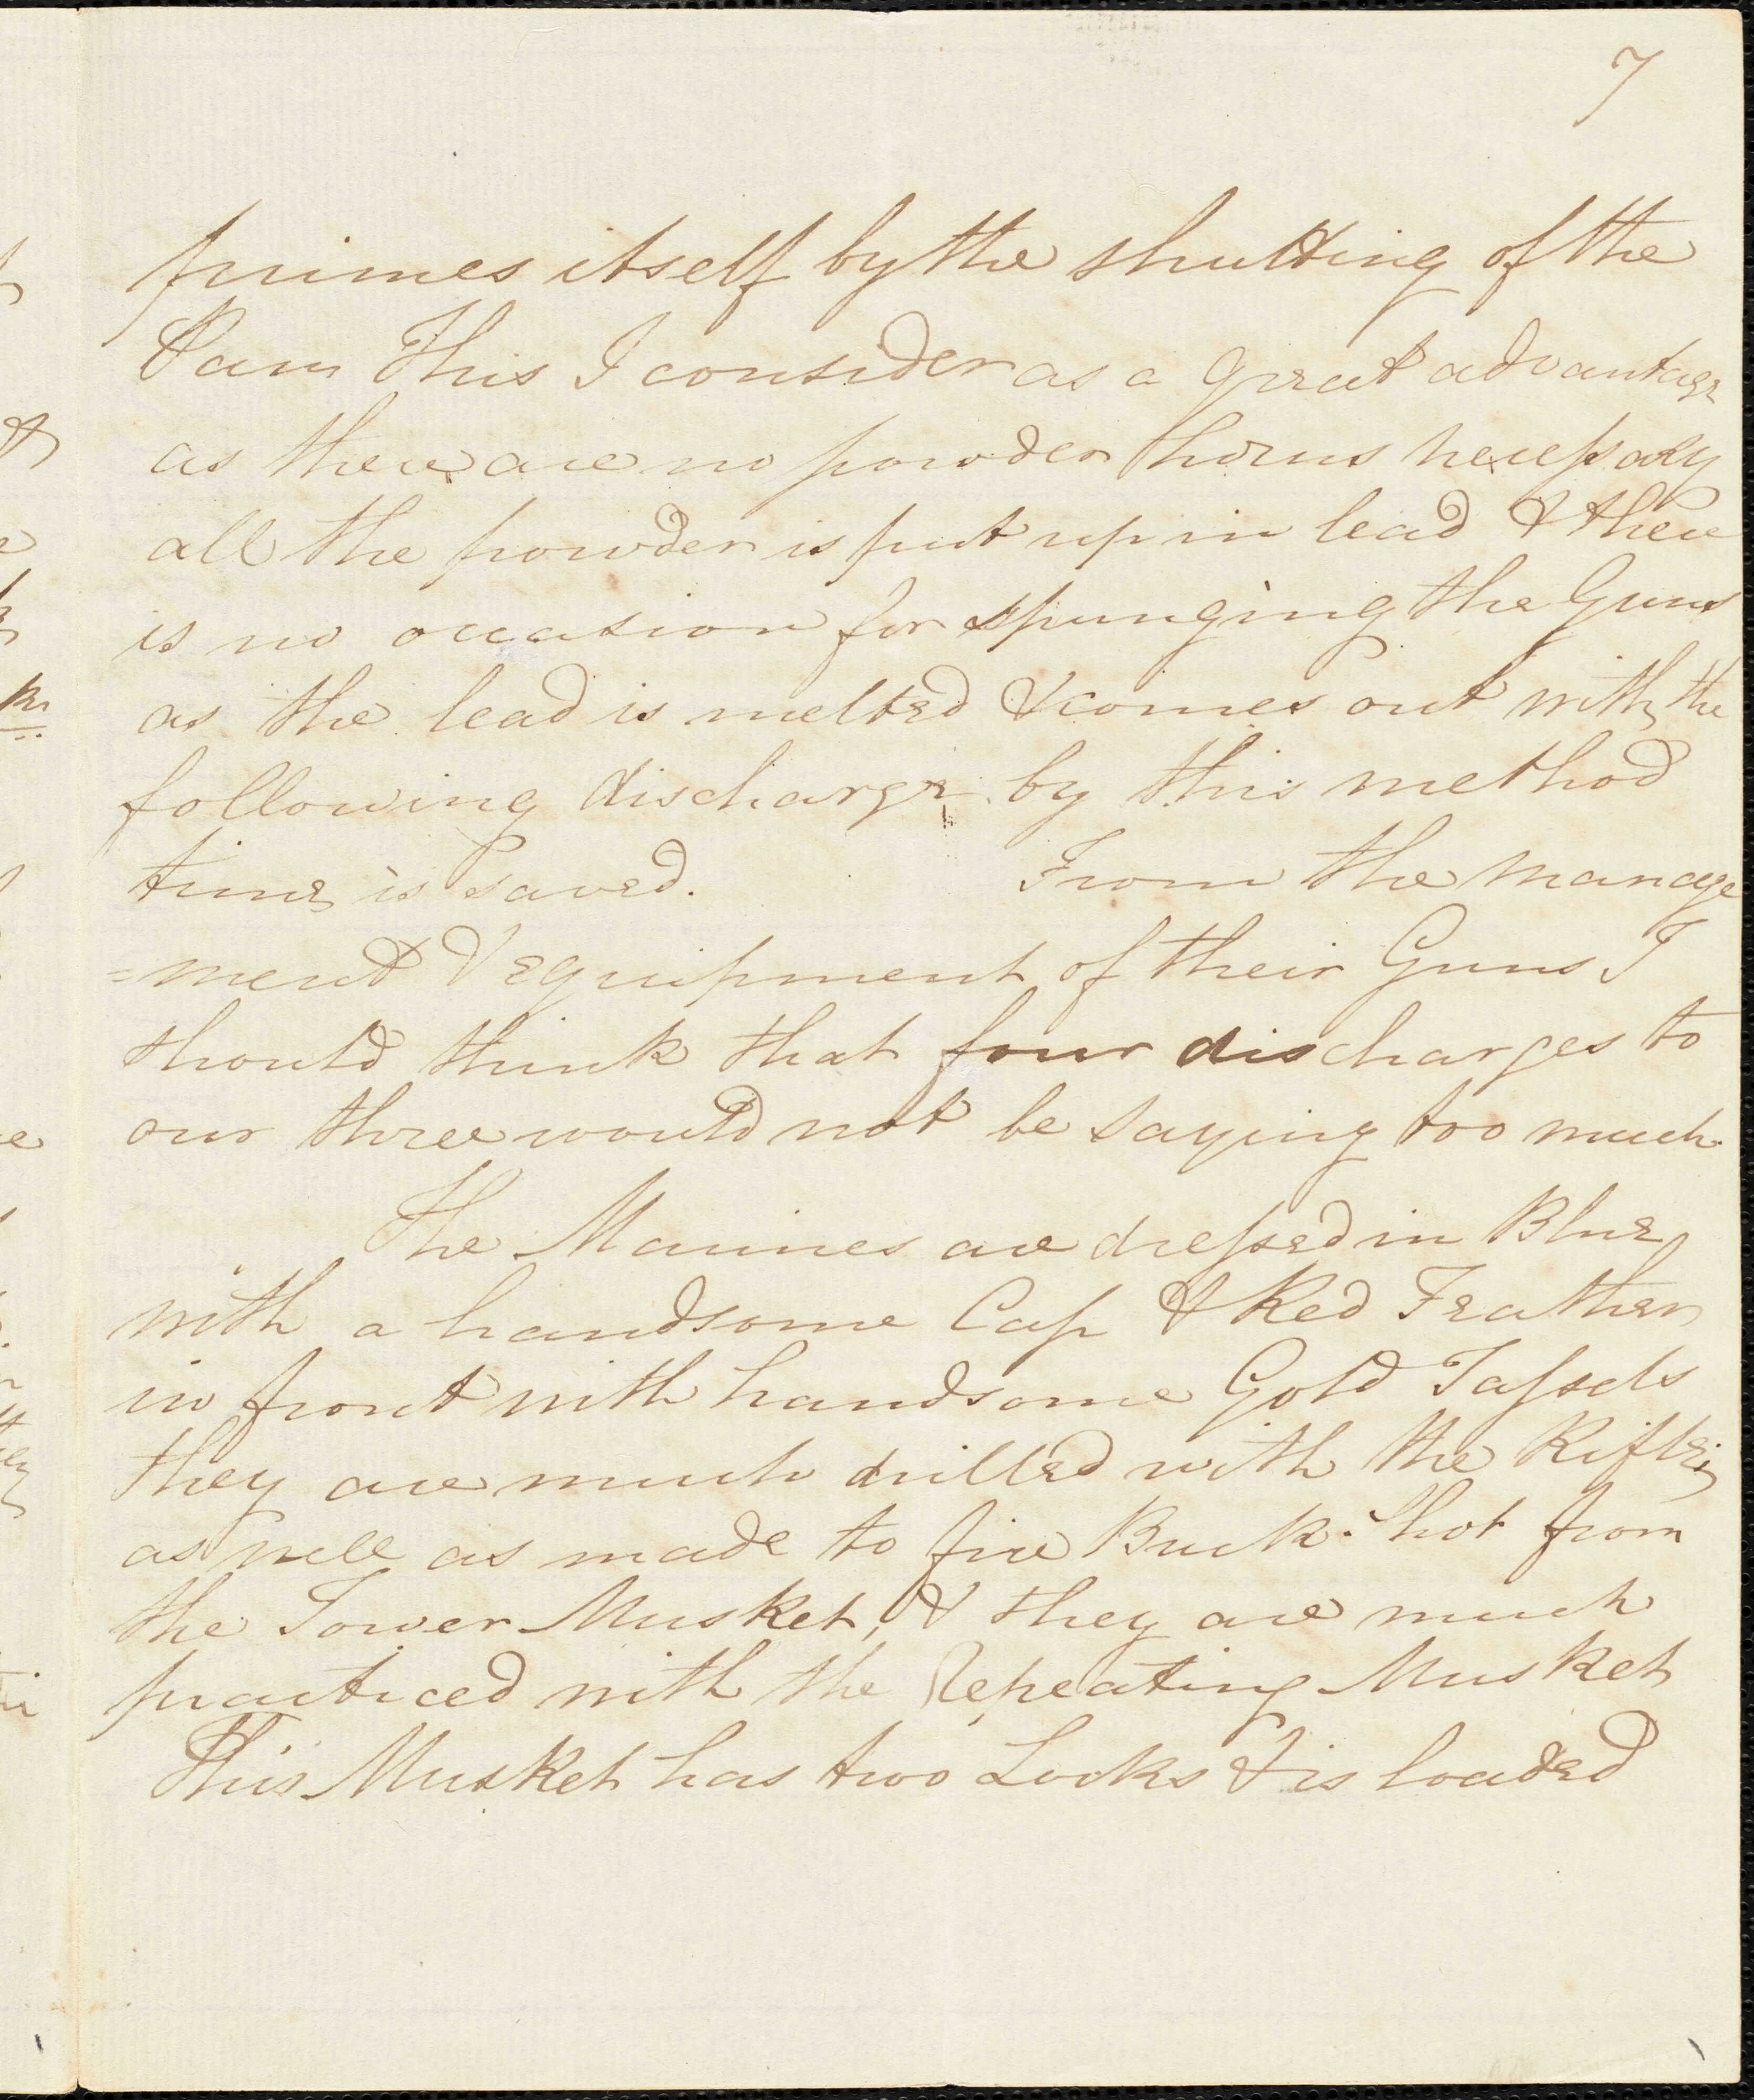 7
primes itself by the shutting of the
Pan This I consider as a great advantage
as there are no powder horns necessary
all the powder is put up in lead & there
is no occasion for spunging the Guns
as the lead is melted & comes out with the
following discharge by this method
time is saved. From the manage
=ment & equipment of their Guns I
should think that four discharges to
our three would not be saying too much.
The Marines are dressed in Blue
with a handsome Cap & Red Feather
in front with handsome Gold Tassels
they are much drilled with the Rifles
as well as made to fire Buck Shot from
the Tower Musket, & they are much
practiced with the Repeating Musket
This Musket has two Locks & is loaded